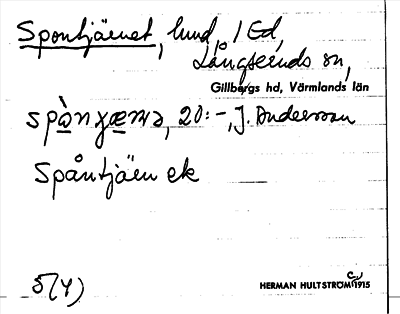 Spontjäenet, lund, 1 Ed,
Långseruds sn,
Gillbergs hd, Värmlands län
20:-, J. Andersson
Spåntjäen ek
5(4)
HERMAN HULTSTRÖM 1915